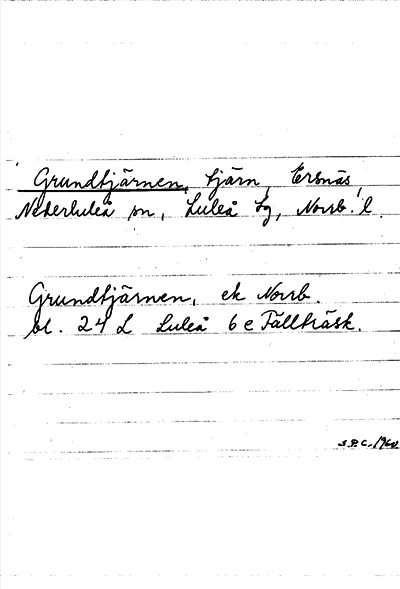 Grundtjärnen, tjärn, Ersnäs,
Nederluleå sn, Luleå tg, Norrb. l.
Grundtjärnen, ek Norrb.
bl. 24 L Luleå 6 e Fällträsk.